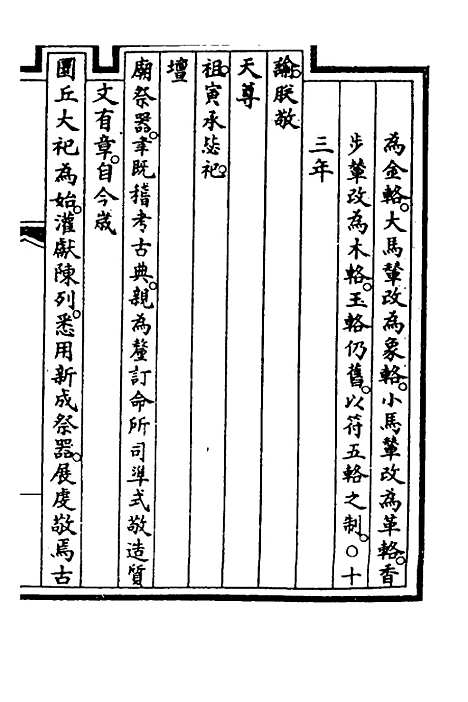 為金輅。大馬輦改為象輅。小馬輦改為革輅。香
步輦改為木輅。玉輅仍舊。以符五輅之制。○十
三年
諭。朕敬
天尊
祖。寅承毖祀。
壇
廟祭器。聿既稽考古典。親為釐訂命所司準式敬造質
文有章。自今歲
圜丘大祀為始。灌獻陳列。悉用新成祭器。展虔敬焉古